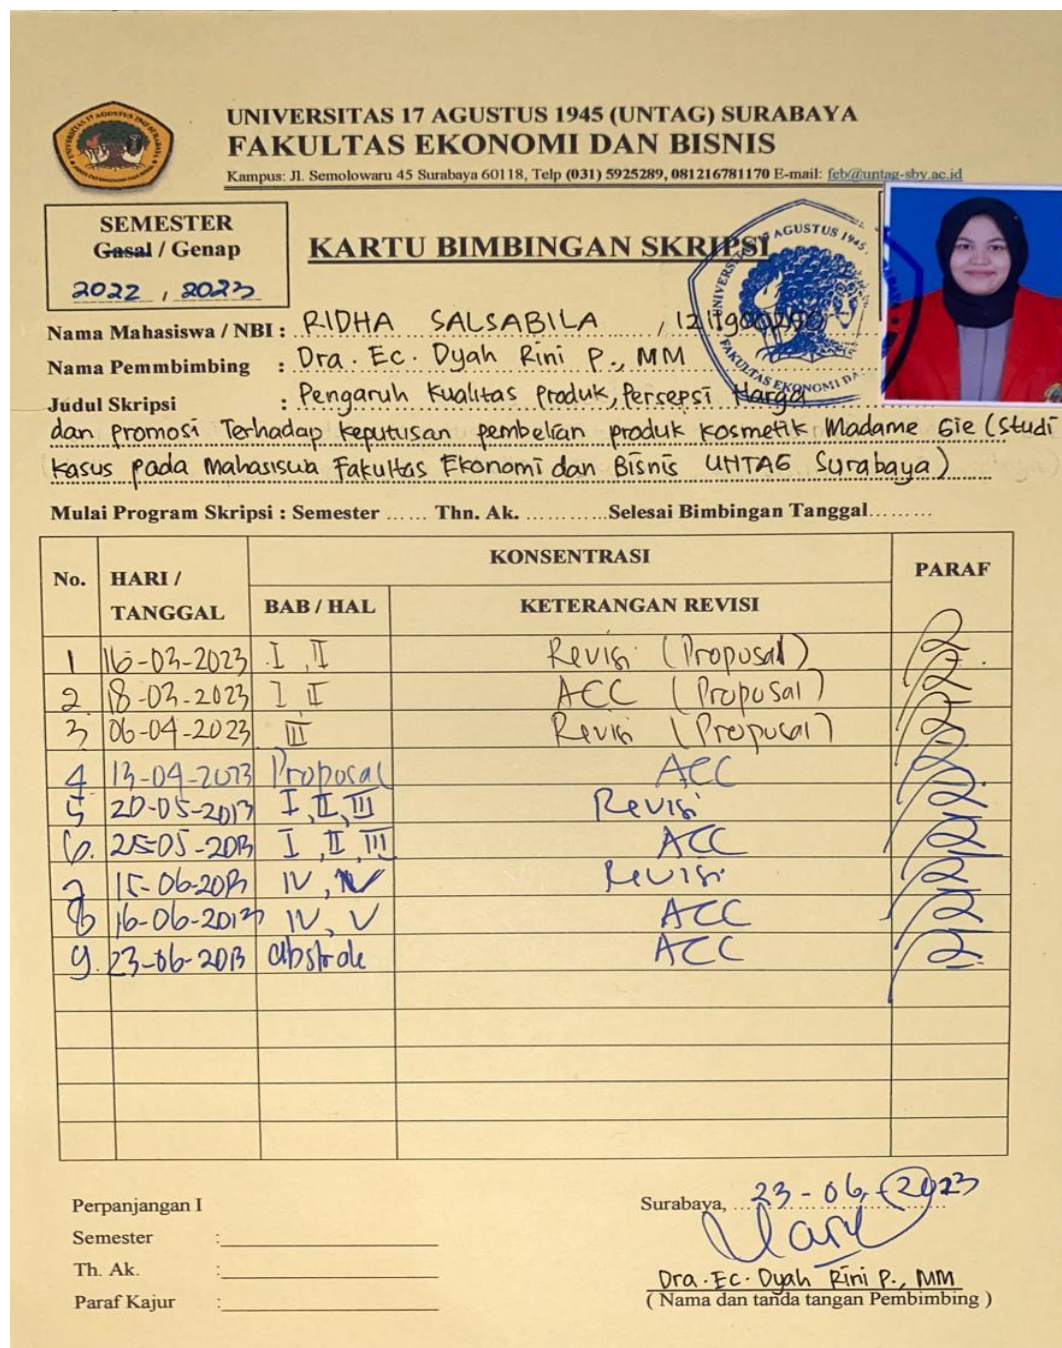 UNIVERSITAS 17 AGUSTUS 1945 (UNTAG) SURABAYA
FAKULTAS EKONOMI DAN BISNIS
Kampus: Jl. Semolowaru 45 Surabaya 60118, Telp (031) 5925289, 081216781170 E-mail: feb@untag-sby.ac.id
SEMESTER
Gasal / Genap
2022 , 2023
KARTU BIMBINGAN SKRIPSI
Nama Mahasiswa / NBI : RIDHA SALSABILA /
Nama Pemmbimbing : Dra. Ec. Dyah Rini P., MM
Judul Skripsi : Pengaruh Kualitas Produk, Persepsi Harga
dan Promosi Terhadap keputusan pembelian produk kosmetik Madame Gie (Studi
Kasus pada Mahasiswa Fakultas Ekonomi dan Bisnis UNTAG Surabaya)
Mulai Program Skripsi : Semester ...... Thn. Ak. ............Selesai Bimbingan Tanggal.........
No. HARI / TANGGAL KONSENTRASI PARAF
BAB / HAL KETERANGAN REVISI
1 16-03-2023 I, II Revisi (Proposal)
2 18-03-2023 I II ACC (Proposal)
3 06-04-2023 III Revisi (Proposal)
4 13-04-2023 Proposal ACC
5 20-05-2013 I, II, III Revisi
6. 25-05-2013 I, II, III ACC
7 15-06-2013 IV, V Revisi
8 16-06-2013 IV, V ACC
9. 23-06-2013 abstrak ACC
Perpanjangan I
Semester :
Th. Ak. :
Paraf Kajur :
Surabaya, 23-06-2023
Dra. Ec. Dyah Rini P., MM
( Nama dan tanda tangan Pembimbing )